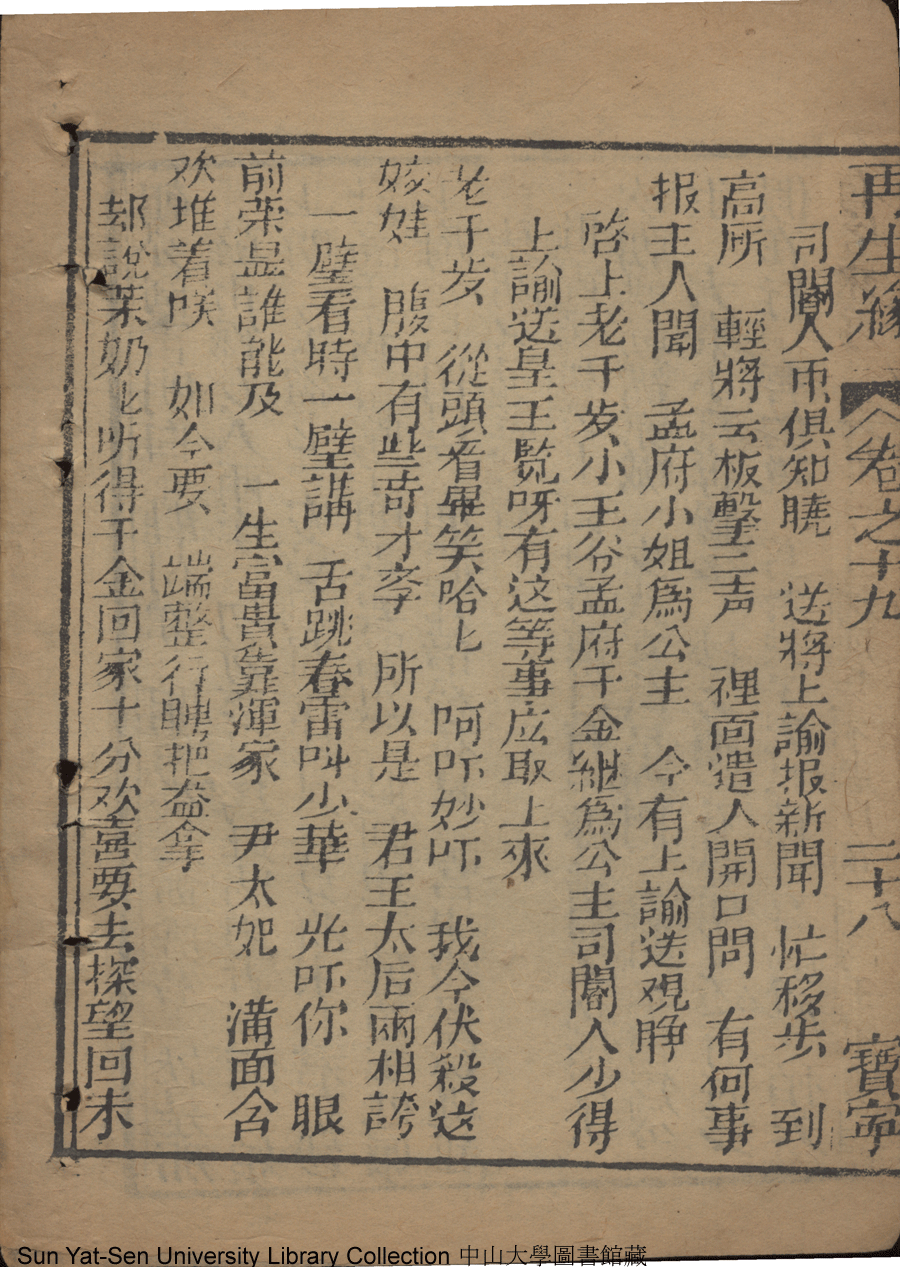 再生緣 卷之十九 二十八 寶寧
司閽人帀俱知曉 送將上諭报新聞 忙移步 到
高𠩄 輕將云板擊三声 裡面遣人開口問 有何事
报主人聞 孟府小姐爲公主 今有上諭送观睁
啓上老千岁小王爷孟府千金継爲公主司閽人少得
上諭送皇王覧呀有这等事应取上來
老千岁 從頭看畢笑哈匕 呵吓妙吓 我今伏殺这
姣娃 腹中有些奇才孛 所以是 君王太后兩相誇
一壁看時一壁講 舌跳春雷叫少華 光吓你 眼
前荣昷誰能及 一生富貴靠渾家 尹太妃 滿面含
欢堆着咲 如今要 端整行聘把益拿
却說茱奶匕听得千金回家十分欢喜要去探望回未
Sun Yat-Sen University Library Collection 中山大學圖書館藏